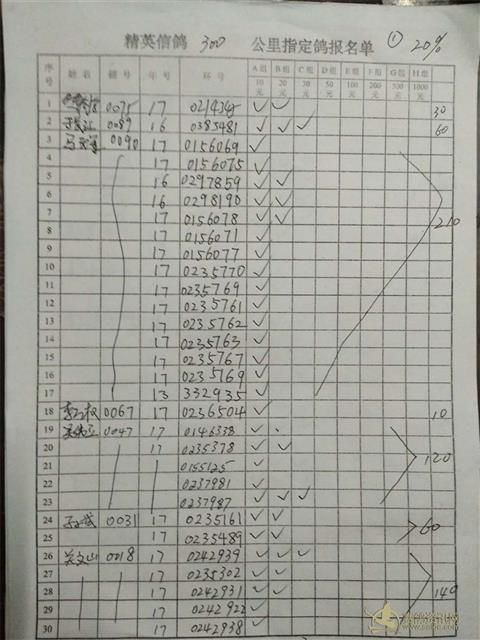 精英信鸽 300 公里指定鸽报名单 ① 20%
序号 姓名 棚号 年号 环号 A组10元 B组20元 C组30元 D组50元 E组100元 F组200元 G组500元 H组1000元
1 0075 17 ✓ ✓ 30
2 0089 16 0385481 ✓ ✓ ✓ 60
3 0090 17 0156069 ✓
4 17 0156075 ✓
5 16 0297859 ✓ ✓
6 16 0298190 ✓ ✓ 210
7 17 0156078 ✓ ✓
8 17 0156071 ✓
9 17 0156077 ✓
10 17 0235770 ✓
11 17 0235769 ✓
12 17 0235761 ✓
13 17 0235762 ✓
14 17 0235763 ✓
15 17 0235767 ✓
16 17 0235169 ✓
17 13 332935 ✓
18 0067 17 0236504 ✓ 10
19 0047 17 0146338 ✓
20 17 0235378 ✓ ✓
21 0155125 ✓ 120
22 0237981 ✓
23 0237987 ✓ ✓ ✓
24 0031 17 0235161 ✓ ✓ 60
25 17 0235489 ✓ ✓
26 吴文山 0018 17 0242939 ✓ ✓ ✓
27 17 0235302 ✓ ✓
28 17 0242931 ✓ ✓ 140
29 17 0242922 ✓
30 17 0242938 ✓